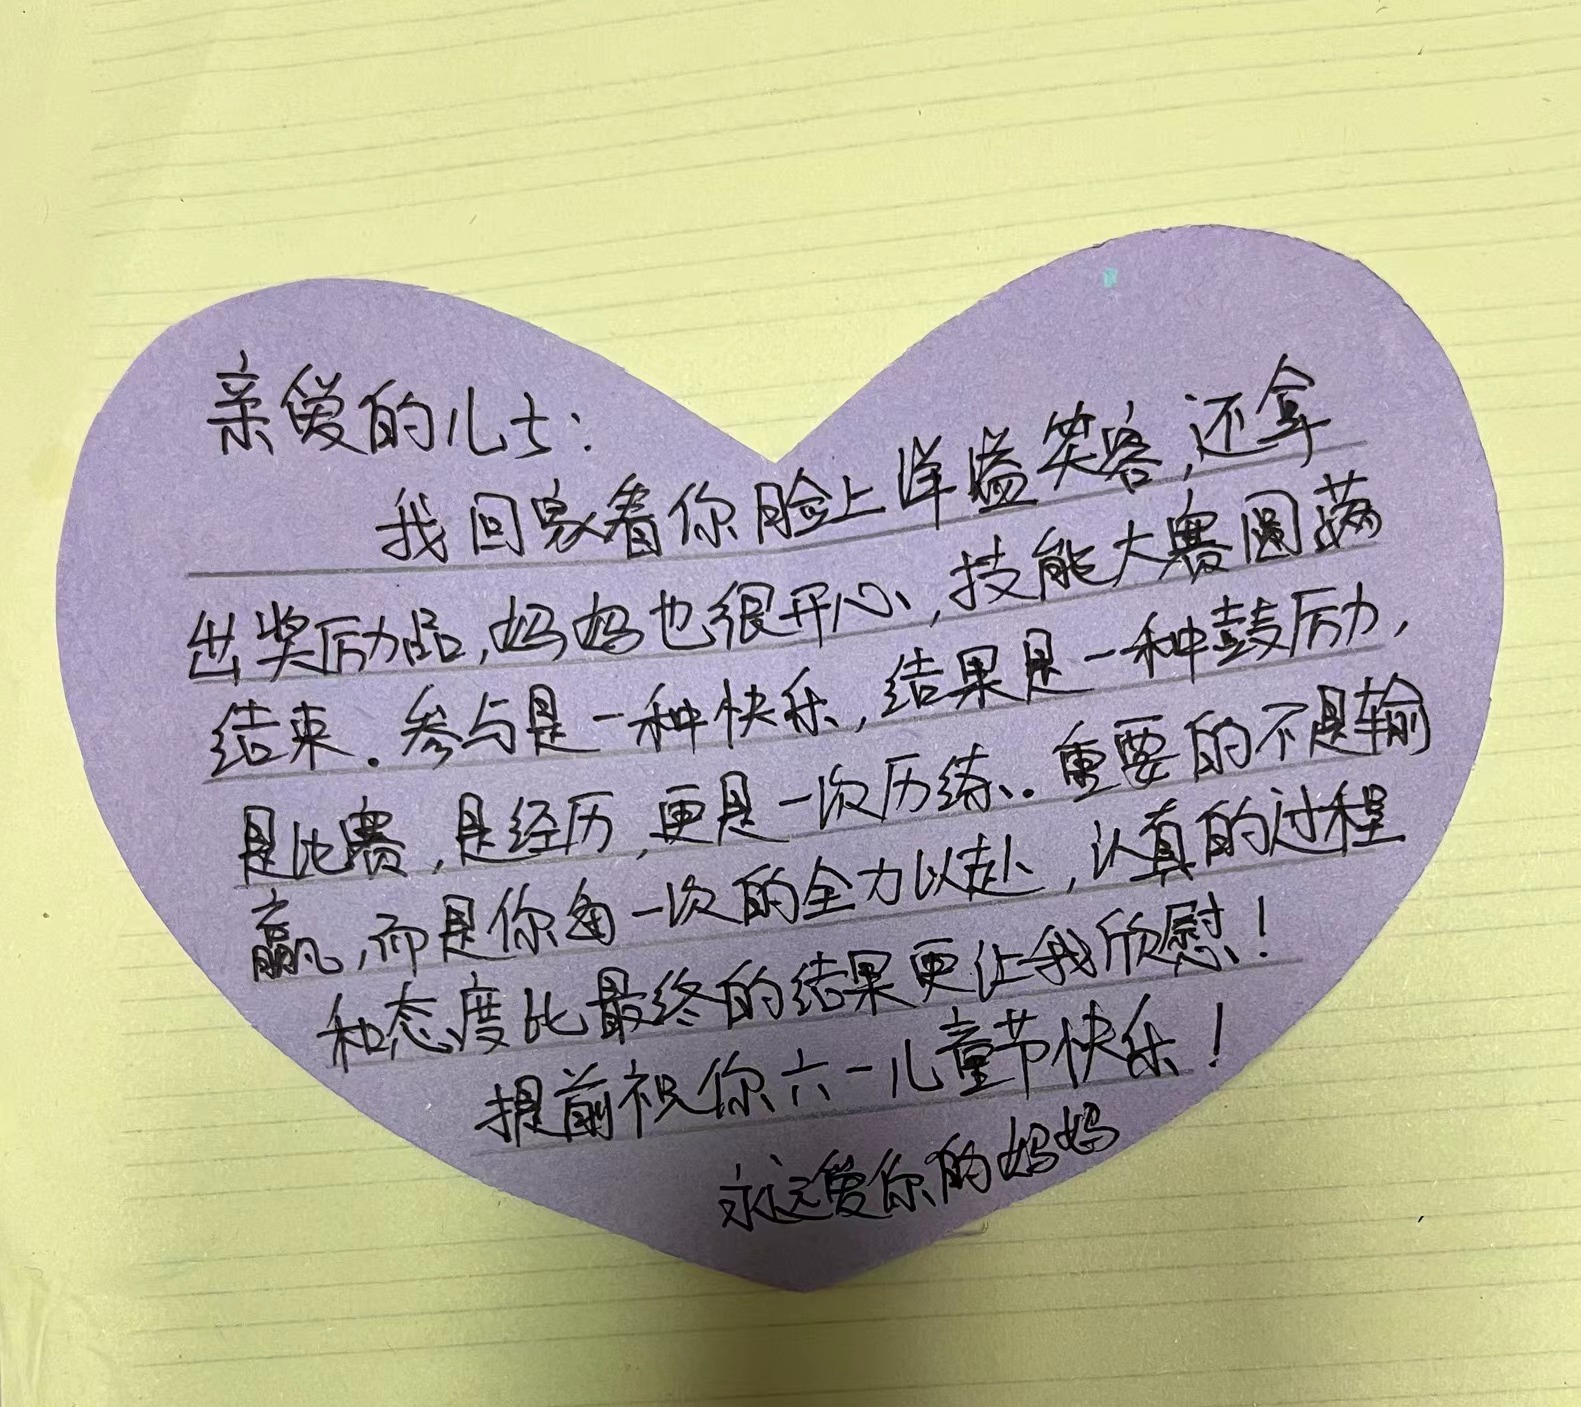 亲爱的儿士：
我回家看你脸上洋溢笑容，还拿
出奖励品，妈妈也很开心，技能大赛圆满
结束．参与是一种快乐，结果是一种鼓励，
是比赛，是经历，更是一次历练．重要的不是输
赢，而是你每一次的全力以赴，认真的过程
和态度比最终的结果更让我欣慰！
提前祝你六一儿童节快乐！
永远爱你的妈妈